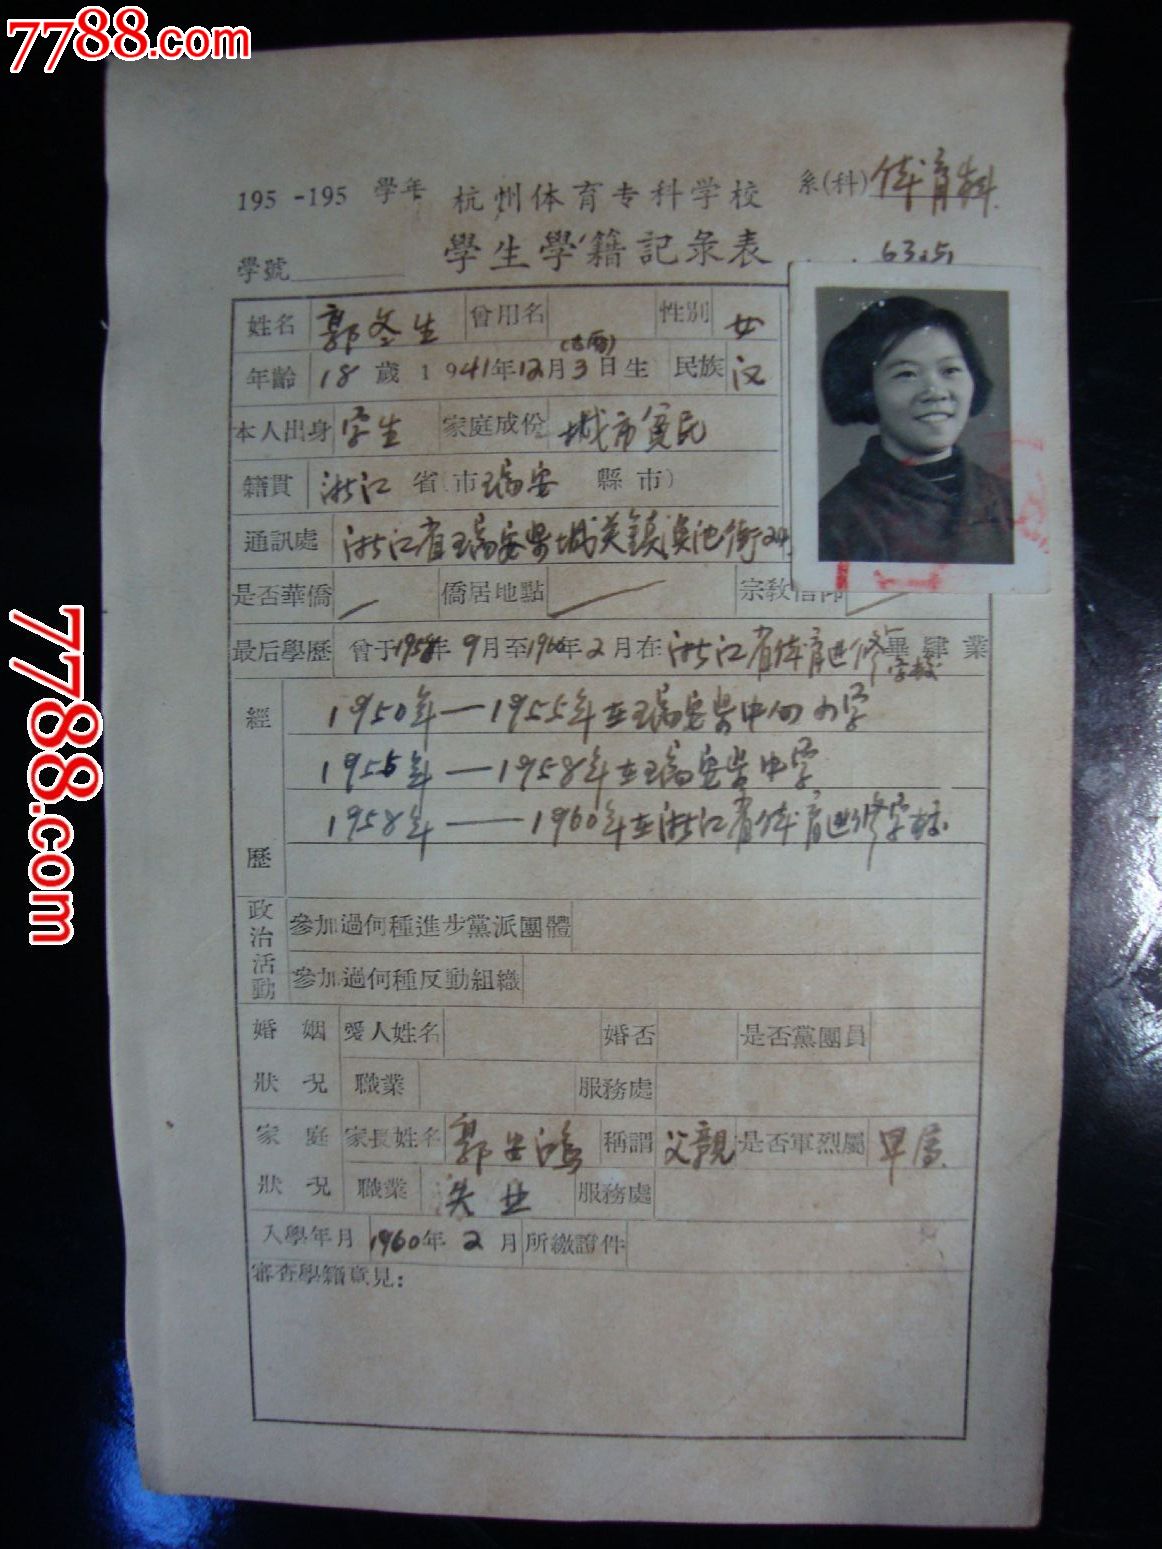 7788.com
195 -195 學年 杭州体育专科学校 系(科) 体育科
學號 學生學籍記彔表 6325
姓名 郭冬生 曾用名 性别 女
(古历)
年齡 18 歲 1941年12月3日生 民族 汉
本人出身 学生 家庭成份 城市贫民
籍貫 浙江 省(市 瑞安 縣市)
通訊處 浙江省瑞安县城关镇 池街24
是否華僑 僑居地點 宗教信仰
最后學歷 曾于1958年9月至1960年2月在 浙江省体育进修学校 畢肄業
經歷
1950年—1955年在瑞安县中心小学
1955年—1958年在瑞安县中学
1958年——1960年在浙江省体育进修学校
政治活動
參加過何種進步黨派團體
參加過何種反動組織
婚姻狀況 愛人姓名 婚否 是否黨團員
職業 服務處
家庭狀況 家長姓名 郭 稱謂 父親 是否軍烈屬
職業 失业 服務處
入學年月 1960年2月 所繳證件
審查學籍意見：
7788.com